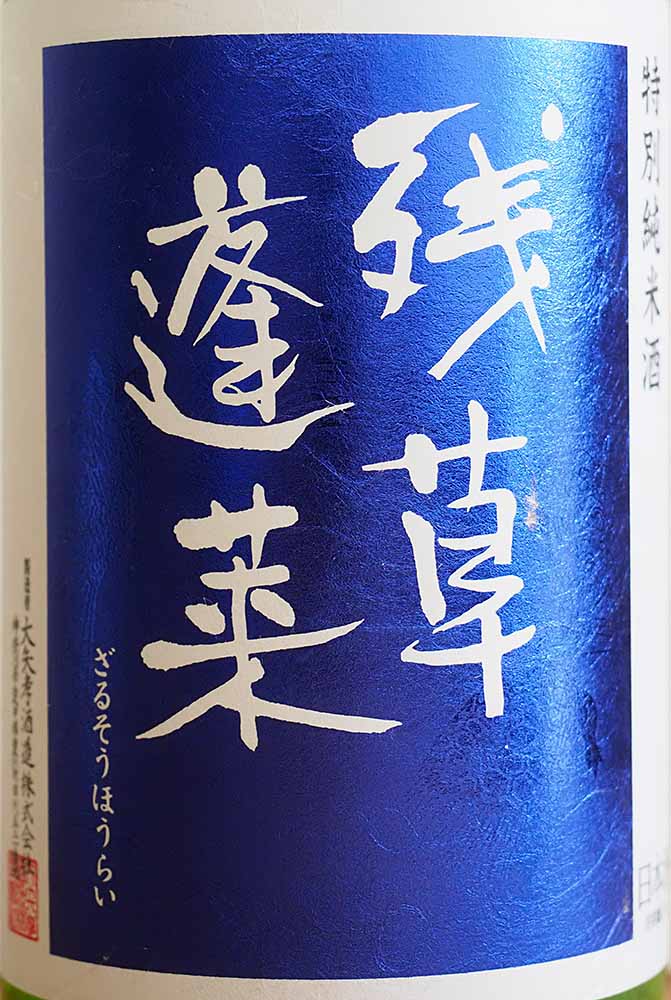 特別純米酒
残草
蓬莱
ざるそうほうらい
製造者 大矢孝酒造株式会社